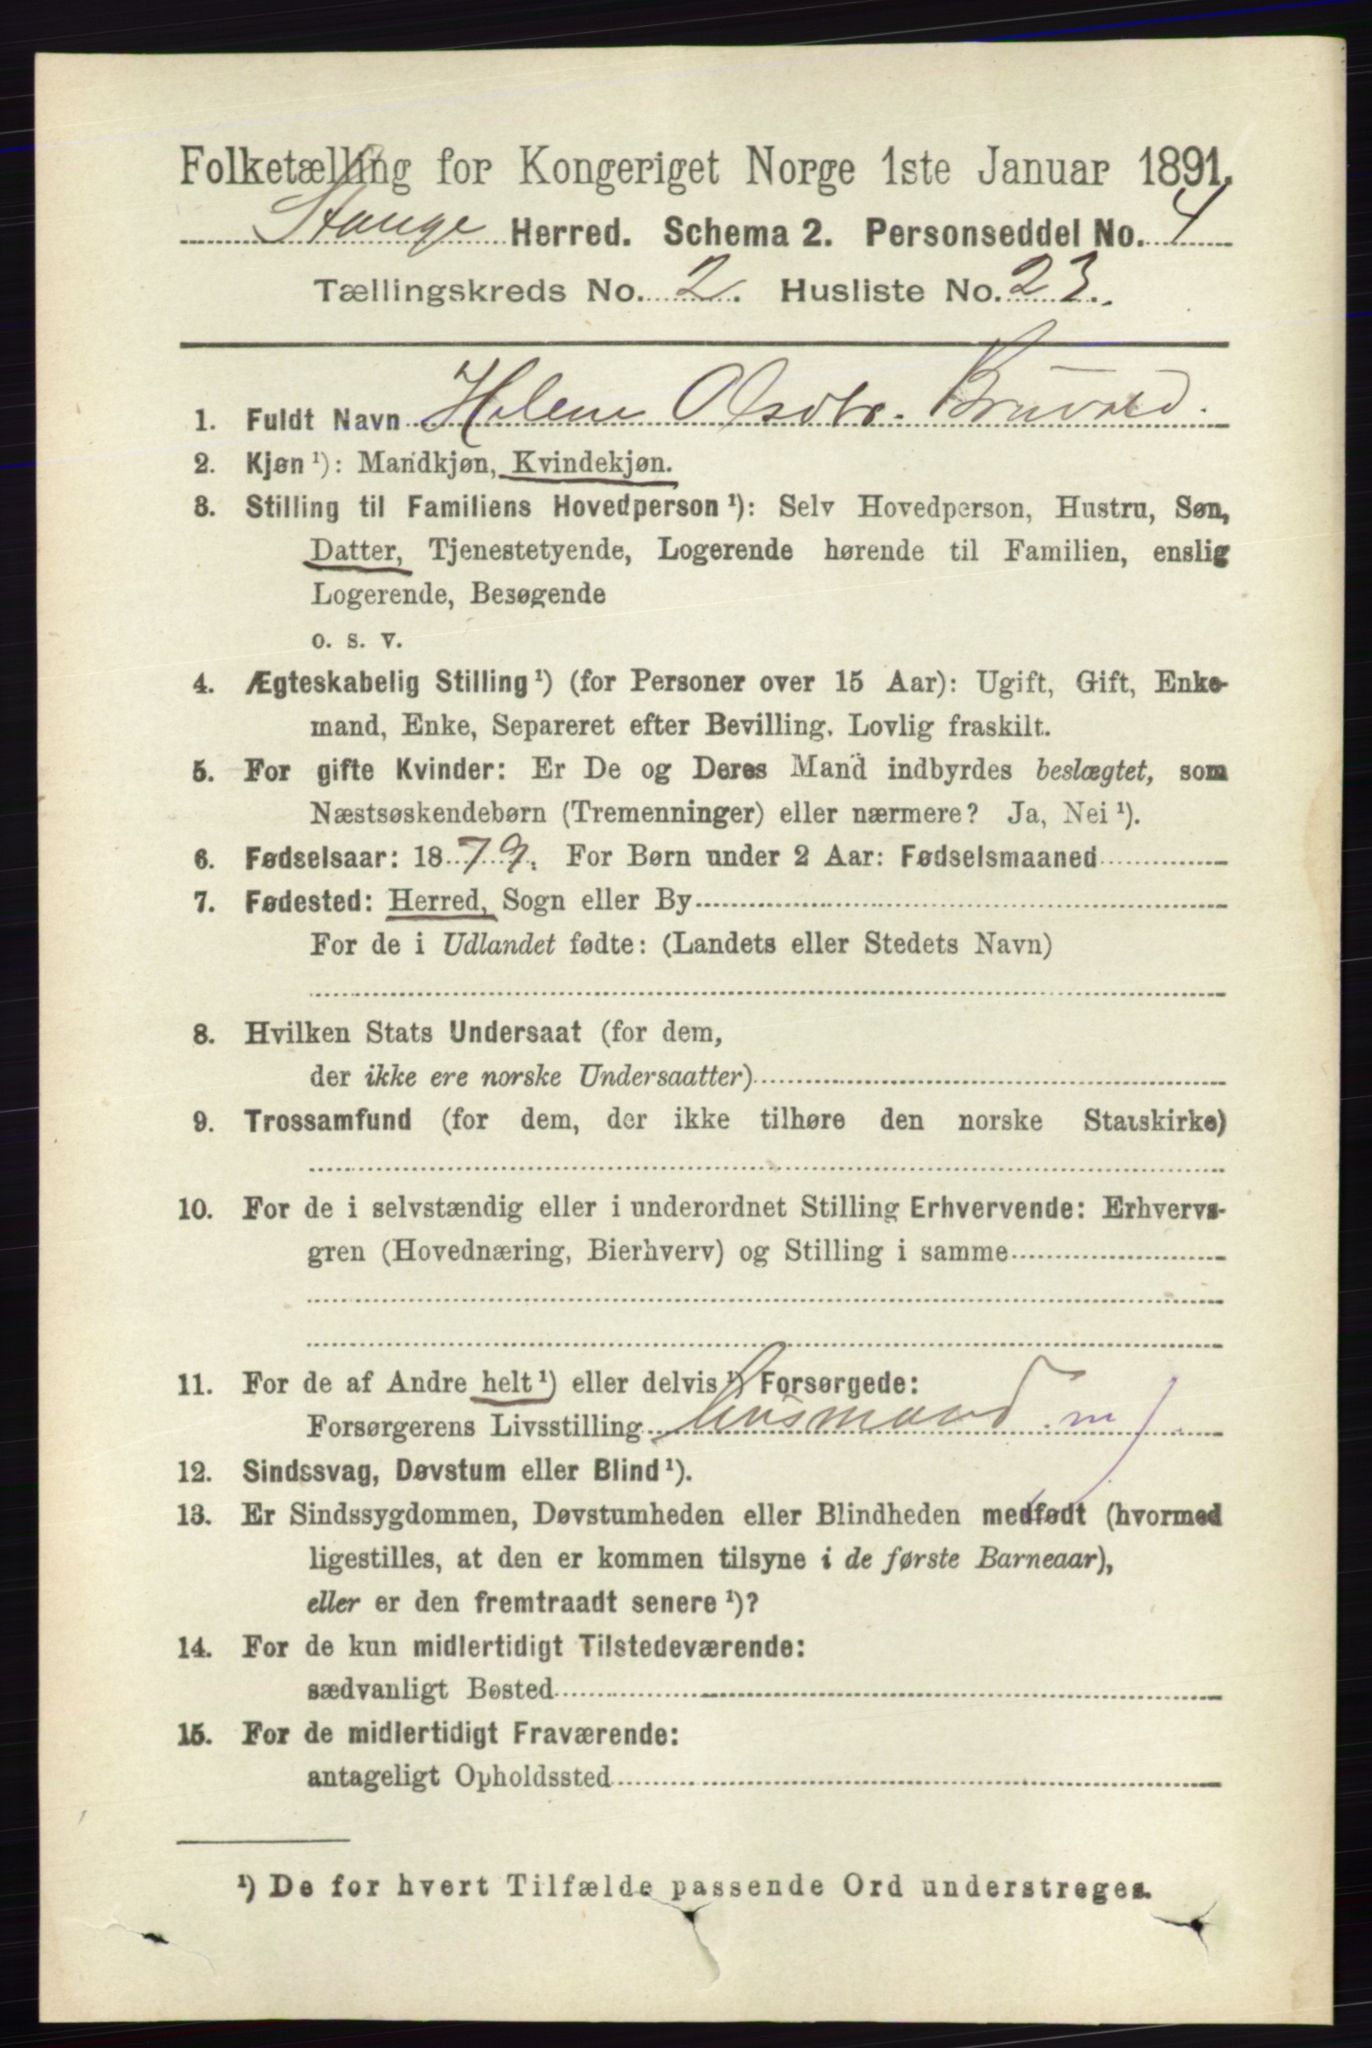 Folketælling for Kongeriget Norge 1ste Januar 1891.
Stange Herred. Schema 2. Personseddel No. 4
Tællingskreds No. 2. Husliste No. 23.
1. Fuldt Navn Helene Olsdtr. Bruvold.
2. Kjøn ¹): Mandkjøn, Kvindekjøn.
3. Stilling til Familiens Hovedperson ¹): Selv Hovedperson, Hustru, Søn,
Datter, Tjenestetyende, Logerende hørende til Familien, enslig
Logerende, Besøgende
o. s. v.
4. Ægteskabelig Stilling ¹) (for Personer over 15 Aar): Ugift, Gift, Enke-
mand, Enke, Separeret efter Bevilling. Lovlig fraskilt.
5. For gifte Kvinder: Er De og Deres Mand indbyrdes beslægtet, som
Næstsøskendebørn (Tremenninger) eller nærmere? Ja, Nei ¹).
6. Fødselsaar: 1879. For Børn under 2 Aar: Fødselsmaaned
7. Fødested: Herred, Sogn eller By
For de i Udlandet fødte: (Landets eller Stedets Navn)
8. Hvilken Stats Undersaat (for dem,
der ikke ere norske Undersaatter)
9. Trossamfund (for dem, der ikke tilhøre den norske Statskirke)
10. For de i selvstændig eller i underordnet Stilling Erhvervende: Erhvervs-
gren (Hovednæring, Bierhverv) og Stilling i samme
11. For de af Andre helt ¹) eller delvis ¹) Forsørgede:
Forsørgerens Livsstilling Husmand m/
12. Sindssvag, Døvstum eller Blind ¹).
13. Er Sindssygdommen, Døvstumheden eller Blindheden medfødt (hvormed
ligestilles, at den er kommen tilsyne i de første Barneaar),
eller er den fremtraadt senere ¹)?
14. For de kun midlertidigt Tilstedeværende:
sædvanligt Bosted
15. For de midlertidigt Fraværende:
antageligt Opholdssted
¹) De for hvert Tilfælde passende Ord understreges.